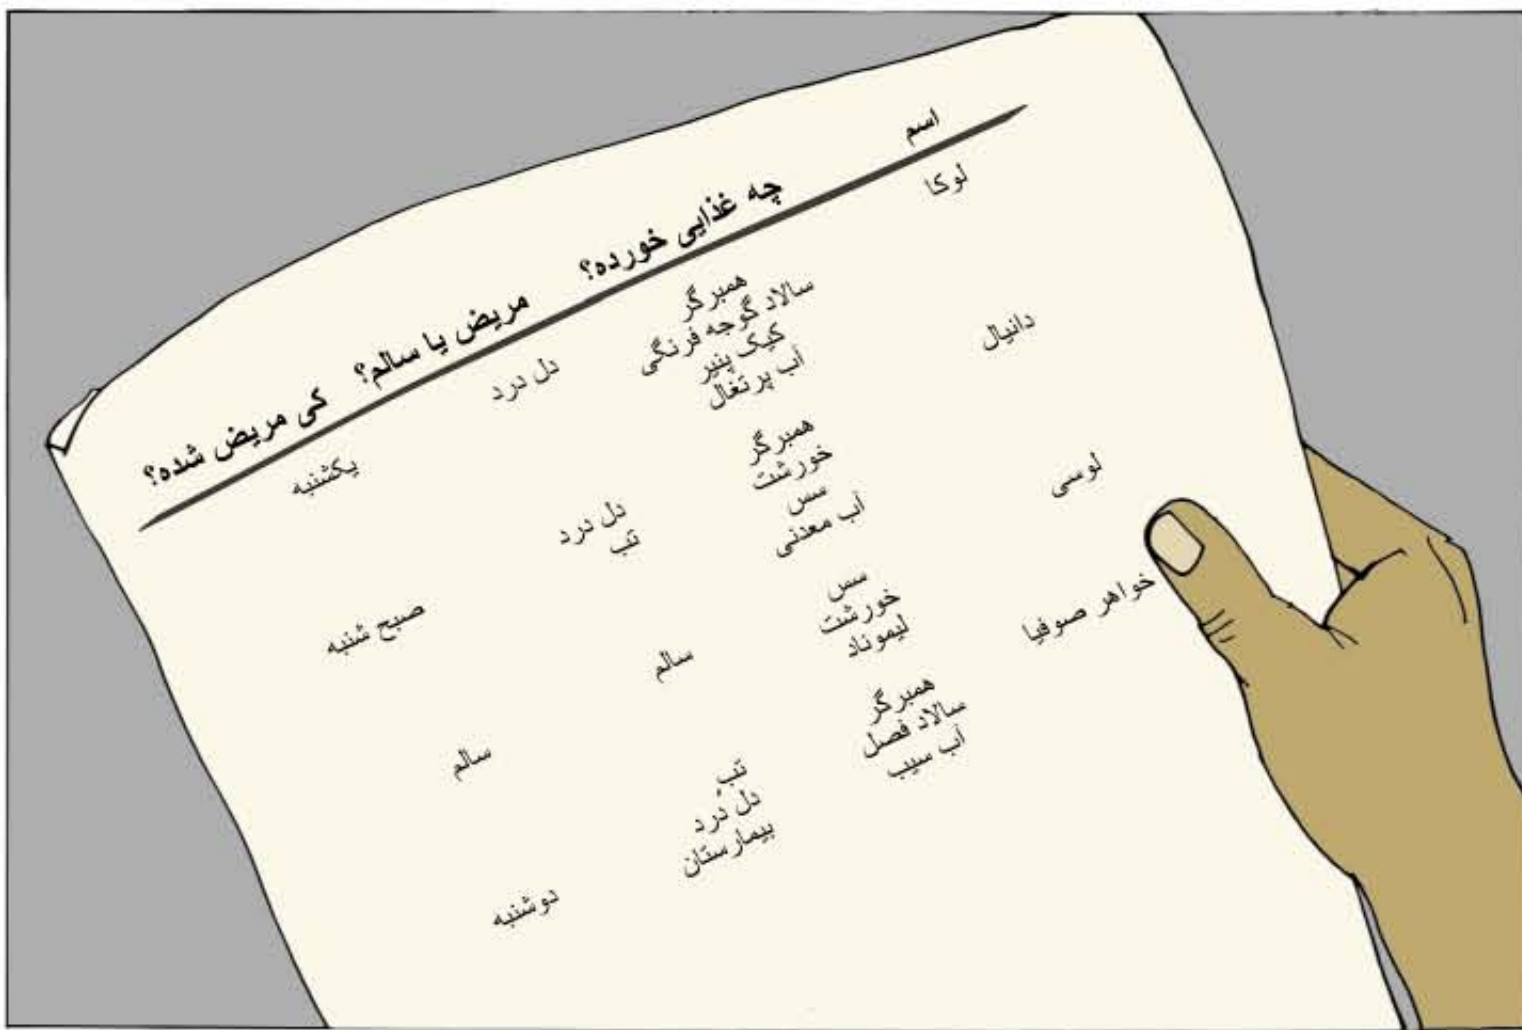 اسم
چه غذایی خورده؟
مریض یا سالم؟
کی مریض شده؟
لوکا
همبرگر
سالاد گوجه فرنگی
کیک پنیر
آب پرتغال
دل درد
یکشنبه
دانیال
همبرگر
خورشت
سس
آب معدنی
دل درد
تب
صبح شنبه
لوسی
سس
خورشت
لیموناد
سالم
سالم
خواهر صوفیا
همبرگر
سالاد فصل
آب سیب
تب
دل درد
بیمارستان
دوشنبه